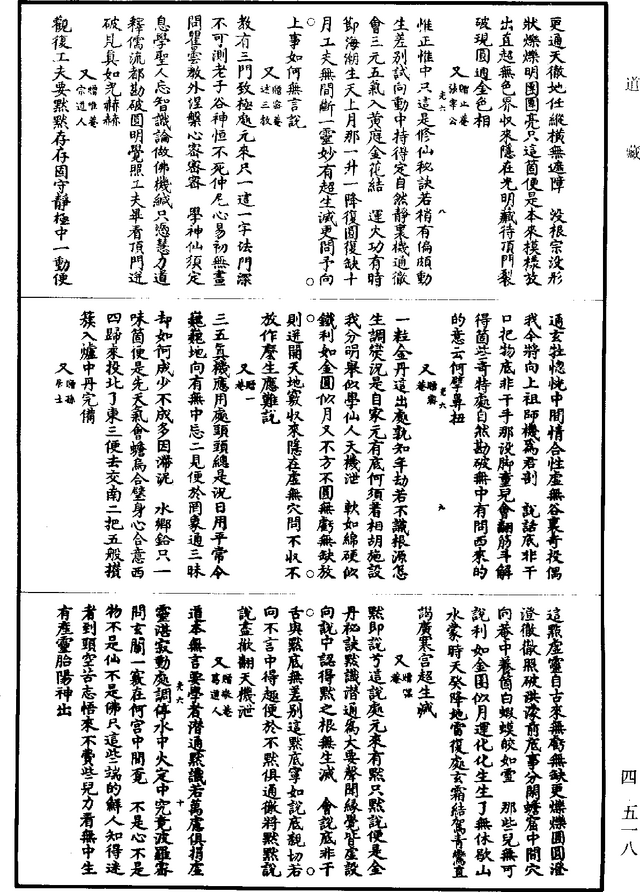 道藏
更通天徹地任縱橫無遮障　沒根宗沒形
狀爍爍明團團亮只這箇便是本來模樣放
出直超無色界収來隱在光明藏待頂門裂
破現圓通金色相
又 贈止菴張宰公
惟正惟中只這是修仙秘訣若稍有偏頗動
光六 八
生差別試向動中持得定自然靜裏機通徹
會三元五氣入黃庭金花結　運火功有時
節海潮生天上月那一升一降復圓復缺十
月工夫無間斷一靈妙有超生滅更問予向
上事如何無言說
又 贈密菴述三教
教有三門致極處元來只一這一字法門深
不可測老子谷神恒不死仲尼心易初無畫
問瞿曇教外涅槃心密密密　學神仙須定
息學聖人忘智識論做佛機緘只憑慧力道
釋儒流都勘破圓明覺照工夫畢看頂門迸
破見真如光赫赫
又 贈唯菴宗道人
觀復工夫要默默存存固守靜極中一動便
通玄牡惚恍中間情合性虛無谷裏奇投偶
我今將向上祖師機為君剖　說話底非干
口把物底非干手那沒脚童兒會翻筋斗解
得箇些奇特處自然勘破無中有問西來的
的意云何擘鼻扭
光六 九
又 贈菴
一粒金丹這出處孰知年劫若不識根源怎
生調燮況是自家元有底何須着相胡施設
我分明舉似學仙人天機泄　軟如綿硬似
鐵利如金圓似月又不方不圓無虧無缺放
則迸開天地竅収來隱在虛無穴問不収不
放作麼生應難說
又 贈一菴
三五真機應用處頭頭總是況日用平常令
巍巍地向有無中忘二見便於罔象通三昧
却如何成少不成多因滯泥　水鄉鉛只一
味箇便是先天氣會蟾烏合璧身心合意西
四歸來投北了東三便去交南二把五般攢
簇入爐中丹完備
又 贈孫居士
這點虛靈自古來無虧無缺更爍爍圓圓澄
澄徹徹照破洪濛前底事分開蟾窟中間穴
向菴中養箇白蝦蟆皎如雪　那些兒無可
說利如金圓似月運化化生生了無休歇山
水蒙時天癸降地雷復處玄霜結駕青鸞直
謁廣寒宮超生滅
又 贈菴
默即說兮這說處元來有默只默說便是金
丹秘訣默識潛通為大要聲聞緣覺皆虛設
向說中認得默之根無生滅　會說底非干
舌與默底無差別這默底寧如說底親切若
向不言中得趣便於不默俱通徹將默默說
說盡掀翻天機泄
又 贈敬菴葛道人
道本無言要學者潛通默識若萬慮俱捐虛
光六 十
靈湛寂動處調停水中火定中究竟波羅密
問玄關一竅在何宮中間覓　不是心不是
物不是仙不是佛只這些端的鮮人知得迷
者到頭空苦志悟來不費些兒力看無中生
有產靈胎陽神出
四－五一八